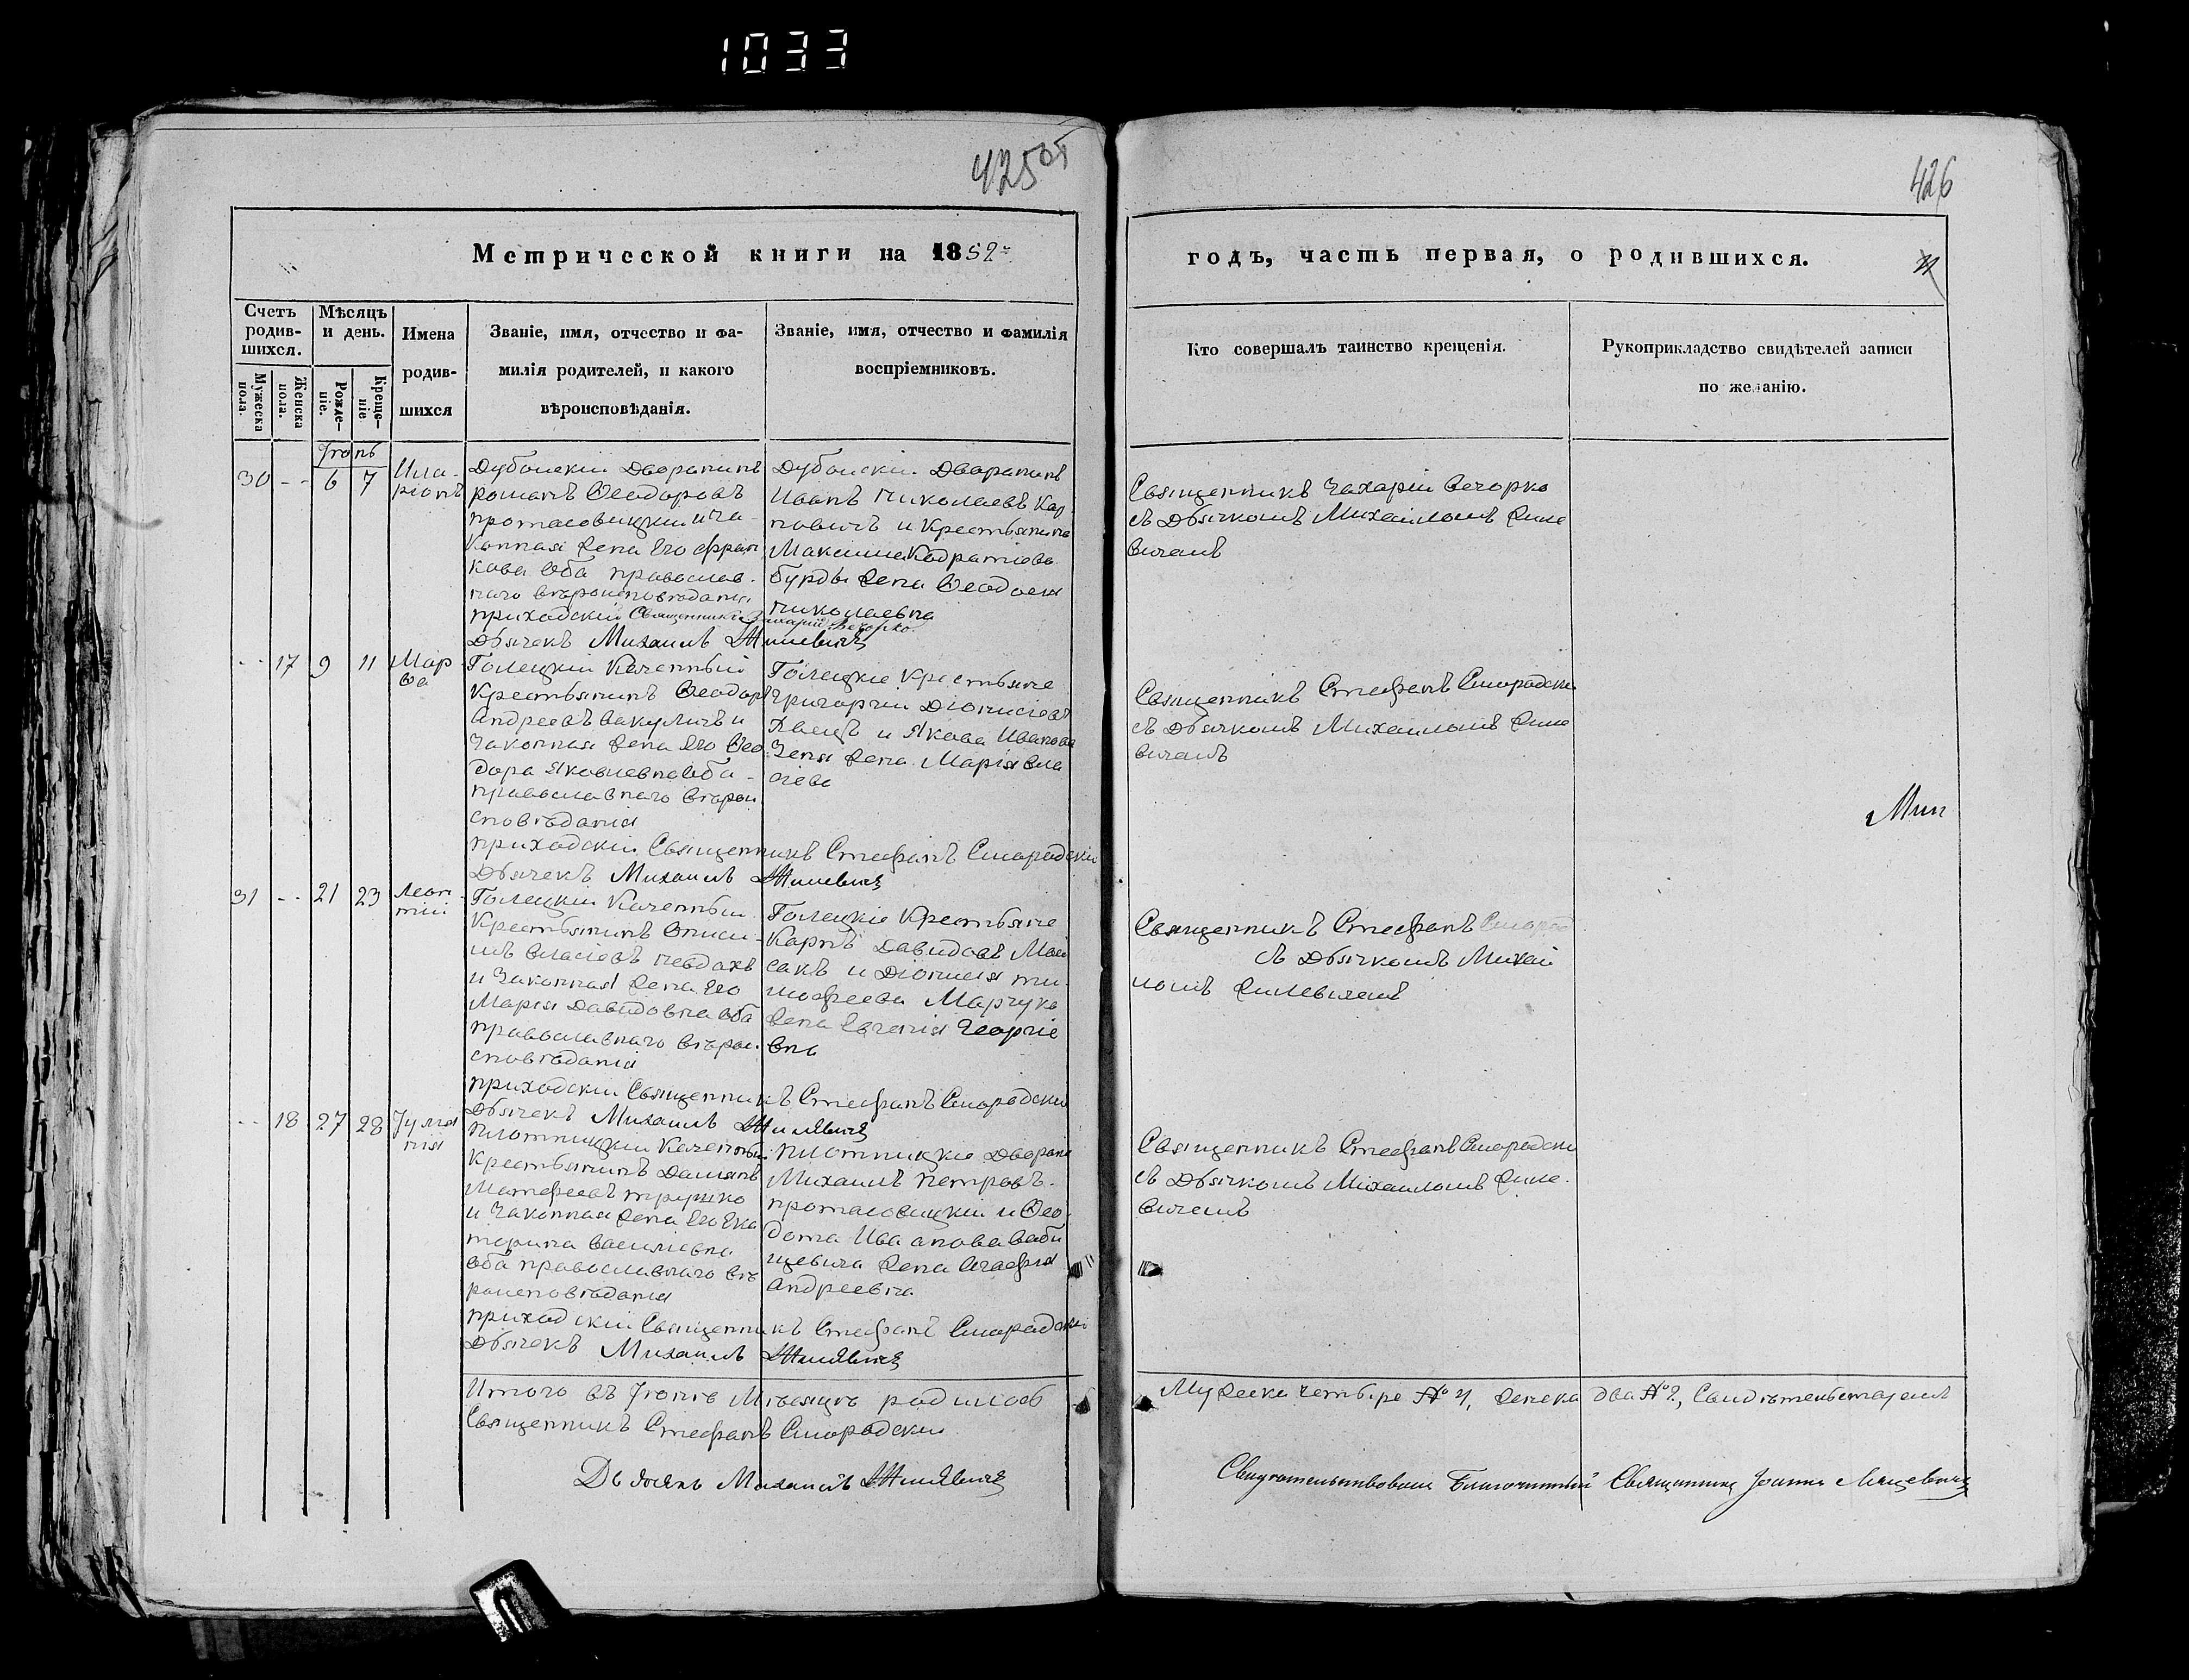 1033
425 об
426
Метрической книги на 1859 г.
годъ, часть первая, о родившихся.
Счетъ родив-шихся.
Мужеска пола.
Женска пола.
Мѣсяцъ и день.
Рожде-ніе.
Креще-ніе
Имена
родив-
шихся
Званіе, имя, отчество и фа-
милія родителей, и какого
вѣроисповѣданія.
Званіе, имя, отчество и фамилія
воспріемниковъ.
Кто совершалъ таинство крещенія.
Рукоприкладство свидѣтелей записи
по желанію.
Іюнь
30 -- 6 7
Ила-
ріонъ
Дубойскій Дворянинъ
Романъ Ѳеодоровъ
Протасовицкій и За-
конная жена Его Фран
кова Оба православ-
наго вѣроисповѣданія
Приходскій Священникъ Захарій Вечорко
Дьячекъ Михаилъ Жилевичъ
Дубойскій Дворянинъ
Иванъ Николаевъ Кар
повичъ и Крестьянина
Максима Кодратіева
бурды жена Ѳеодосія
Николаевна
Священникъ Захарій Вечорко
съ Дьячкомъ Михаиломъ Жиле
вичемъ
-- 17 9 11
Мар
ѳа
Голецкій Казенный
Крестьянинъ Ѳеодоръ
Андреевъ Вакуличъ и
Законная жена Его Ѳео
дора Яковлевна Оба
православнаго вѣрои
сповѣданія
Приходскій Священникъ Стефанъ Смородскій
Дьячекъ Михаилъ Жилевичъ
Голецкіе Крестьяне
Григорій Діонисіевъ
и Якова Иванова
жена Марія Вла
сіева
Священникъ Стефанъ Смородскій
съ Дьячкомъ Михаиломъ Жиле
вичемъ
Мин
31 -- 21 23
Леон
тій
Голецкій Казенный
Крестьянинъ Ониси-
мъ Власіевъ
и Законная жена Его
Марія Давидовна оба
православнаго вѣрои-
сповѣданія
Приходскій Священникъ Стефанъ Смородскій
Дьячекъ Михаилъ Жилевичъ
Голецкіе Крестьяне
Карпъ Давидовъ Мои
сакъ и Діонисія Ти-
мофеева Марчука
жена Евгенія Георгіе
вна
Священникъ Стефанъ Смород
съ Дьячкомъ Михаи
ломъ Жилевичемъ
-- 18 27 28
Іулiа
нія
Плотницкій Казенный
Крестьянинъ Даміанъ
Матфеевъ Трушко
и Законная жена Его Ека
терина Василіевна
оба православнаго вѣ
роисповѣданія
Приходскій Священникъ Стефанъ Смородскій
Дьячекъ Михаилъ Жилевичъ
Плотницкіе Дворяне
Михаилъ Петровъ
Протасовицкій и Ѳео
дота Иванова Баби
цевича жена Агафія
Андреевна
Священникъ Стефанъ Смородскій
съ Дьячкомъ Михаиломъ Жиле-
вичемъ
Итого въ Іюнѣ Мѣсяцѣ родилось Мужеска четыре № 4, женска два № 2, Свидѣтельствуемъ
Священникъ Стефанъ Смородскій
Дьячекъ Михаилъ Жилевичъ
Свидѣтельствовалъ Благочинный Священникъ Іоаннъ